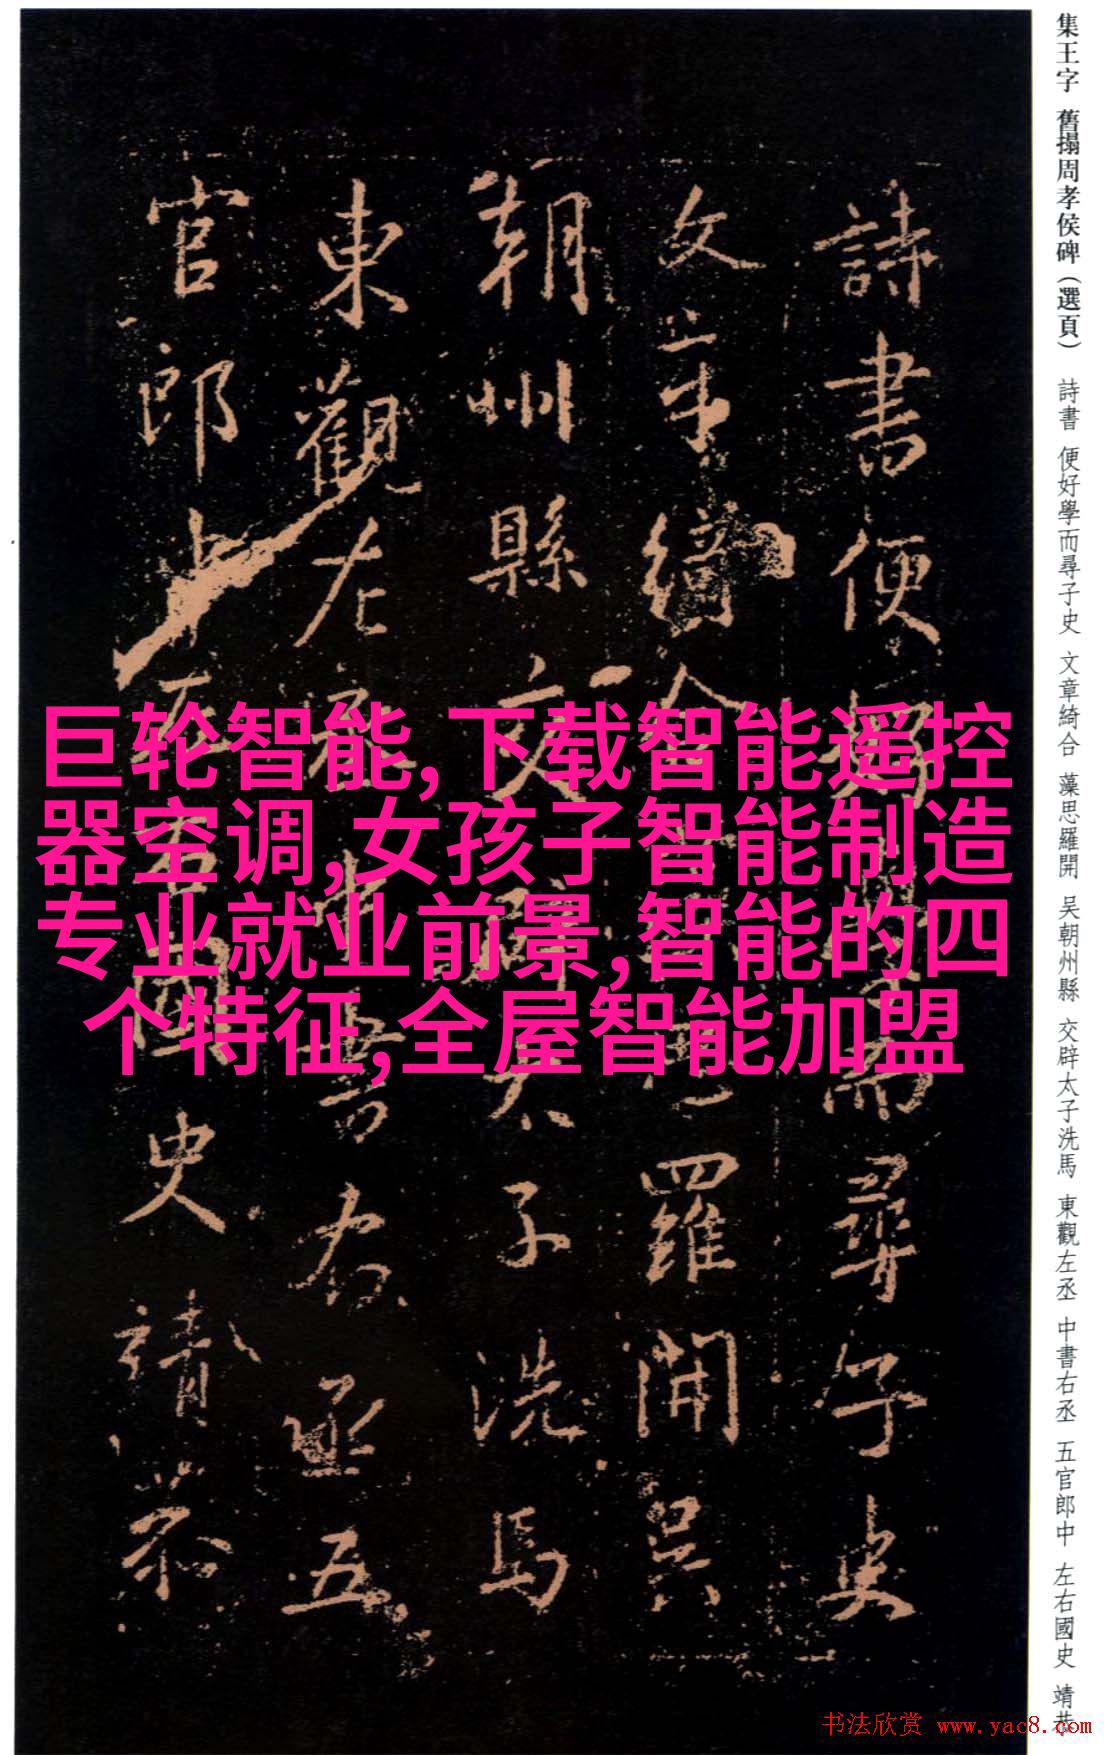 集王字 舊搨周孝侯碑（選頁） 詩書 便好學而尋子史 文章綺合 藻思羅開 吴朝州縣 交辟太子洗馬 東觀左丞 中書右丞 五官郎中 左右國史 靖恭
詩書便好學而尋子史
文章綺合
羅開吴
朝州縣交辟太子洗馬
東觀左丞中書右丞五
官郎中左右國史靖恭
巨轮智能,下载智能遥控
器空调,女孩子智能制造
专业就业前景,智能的四
个特征,全屋智能加盟
书法欣赏 www.yac8.com